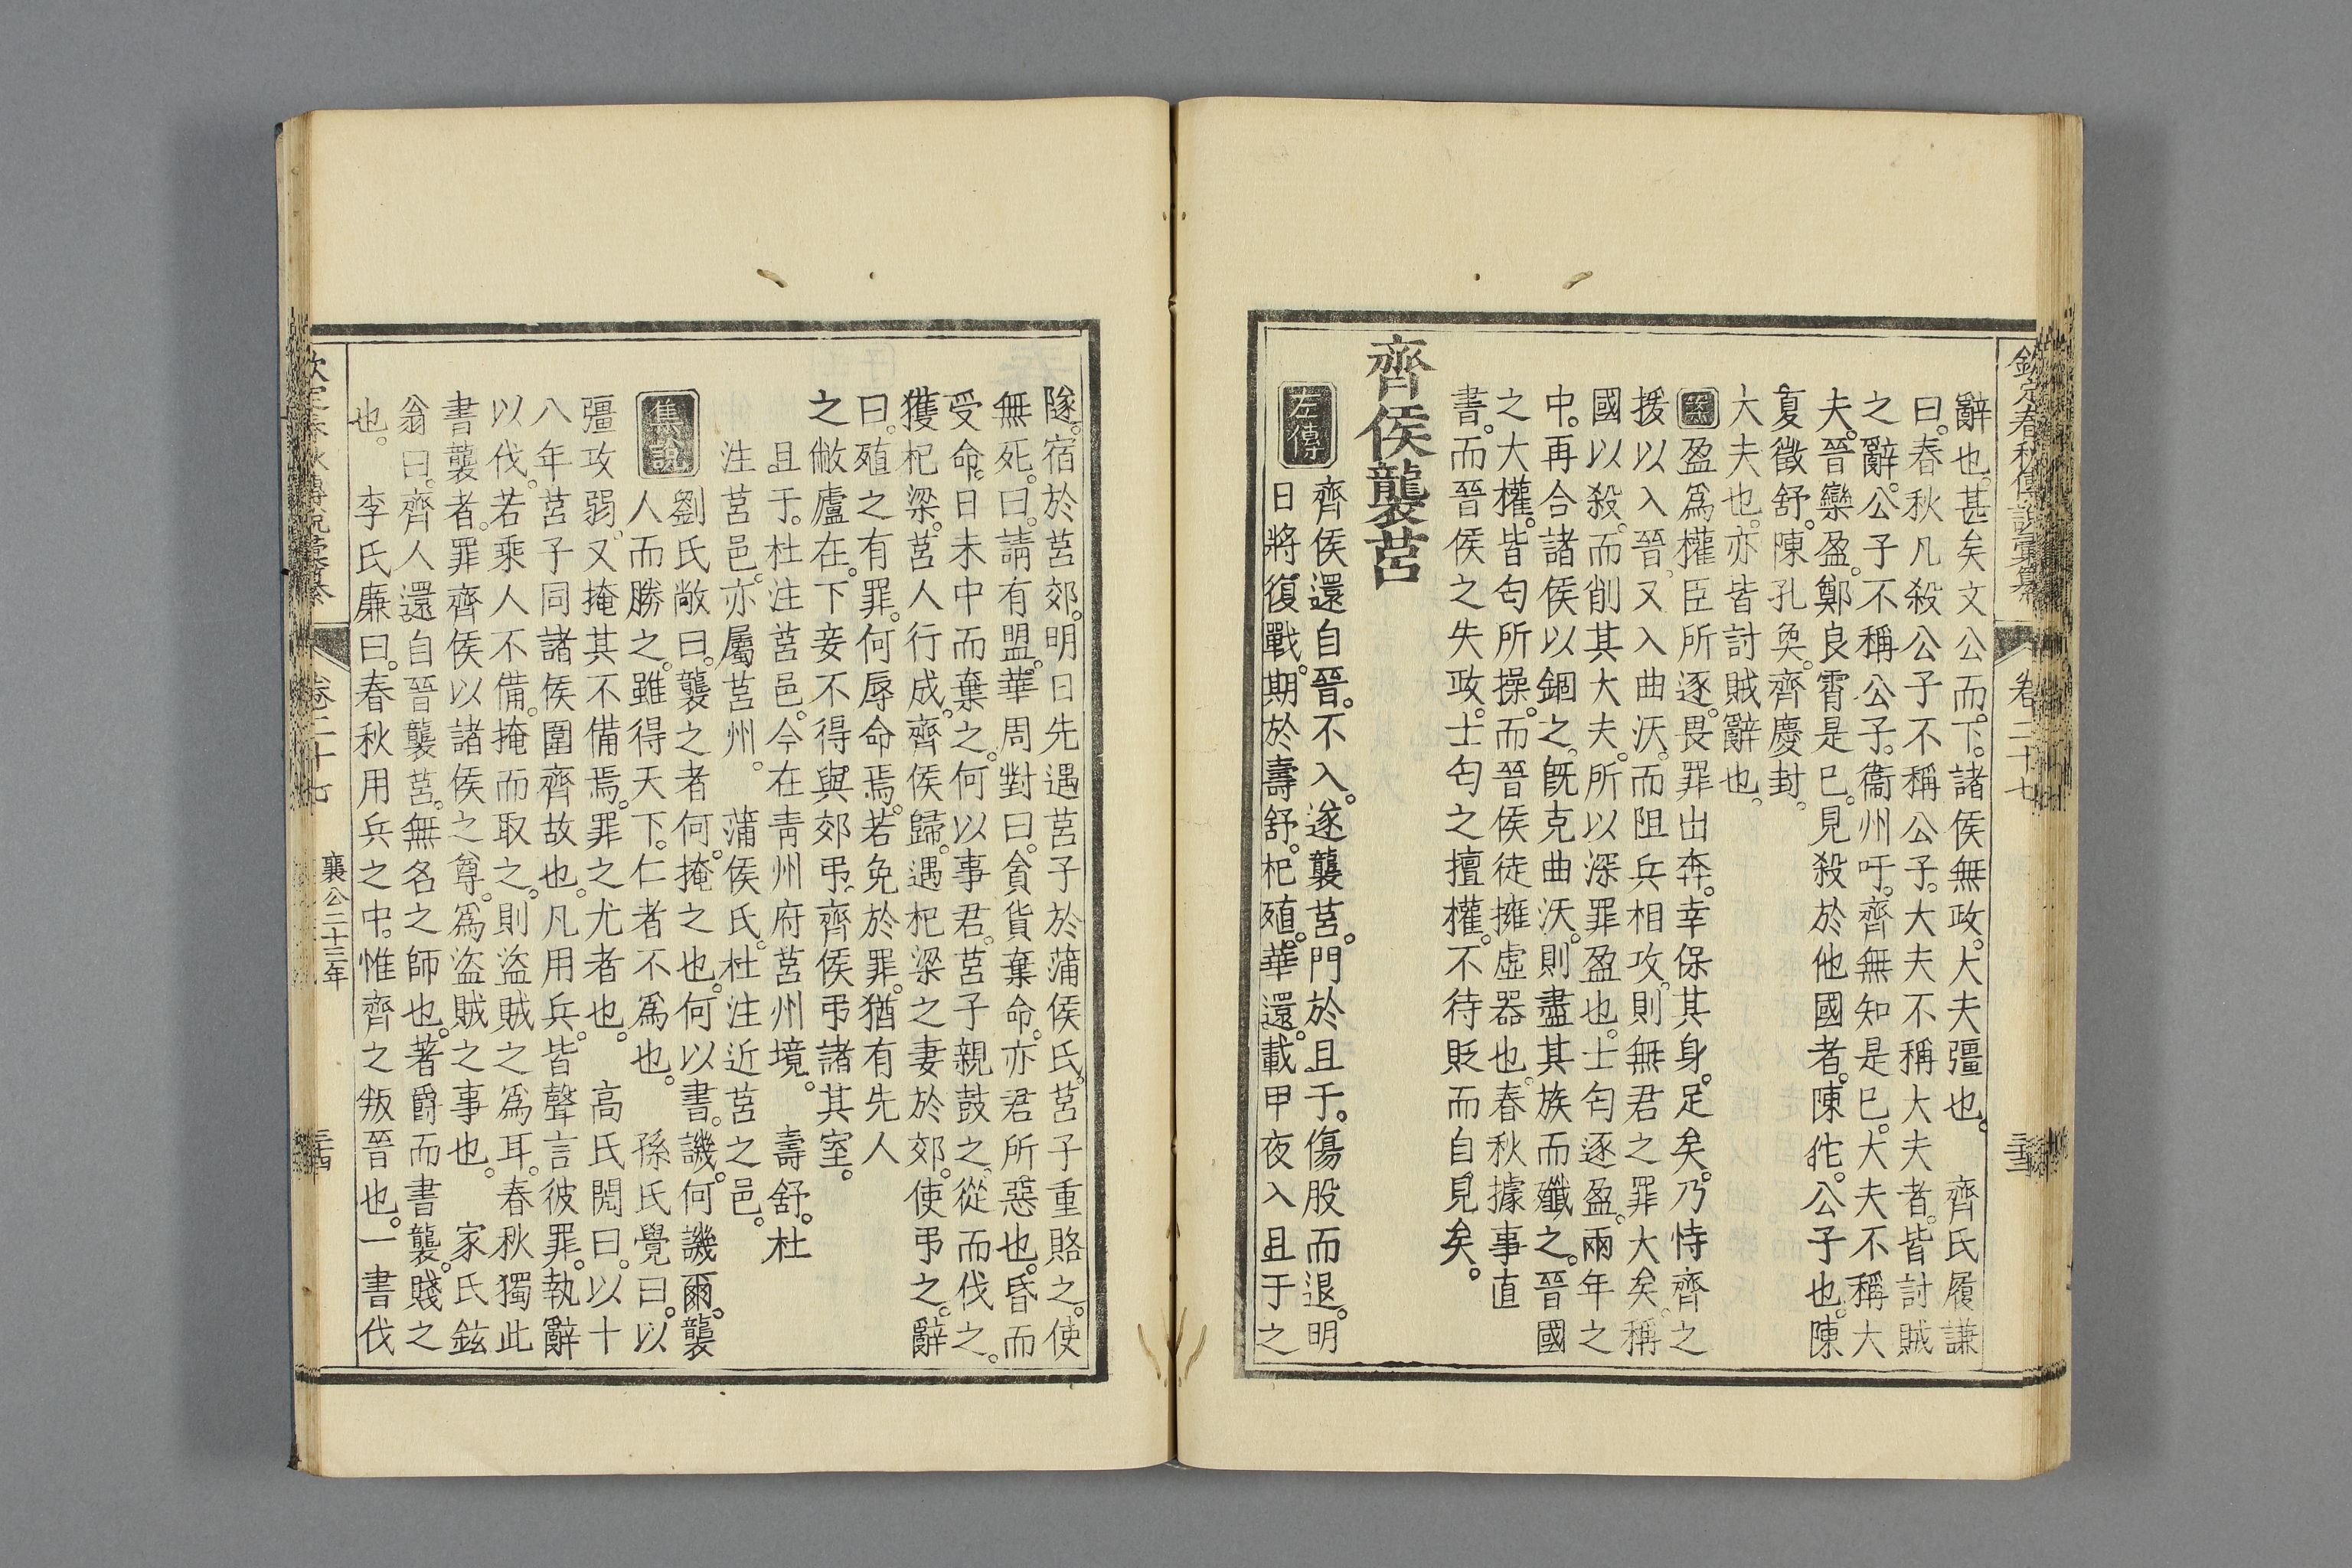 欽定春秋傳說彙纂 卷二十七 三十三
辭也。甚矣文公而下。諸侯無政。大夫彊也。 齊氏履謙
曰。春秋凡殺公子不稱公子。大夫不稱大夫者。皆討賊
之辭。公子不稱公子。衞州吁。齊無知是已。大夫不稱大
夫。晉欒盈。鄭良霄是已。見殺於他國者。陳佗。公子也。陳
夏徵舒。陳孔奐。齊慶封。
大夫也。亦皆討賊辭也。
案 盈爲權臣所逐。畏罪出奔。幸保其身。足矣。乃恃齊之
援以入晉。又入曲沃。而阻兵相攻。則無君之罪大矣。稱
國以殺。而削其大夫。所以深罪盈也。士匄逐盈。兩年之
中。再合諸侯以錮之。旣克曲沃。則盡其族而殲之。晉國
之大權。皆匄所操。而晉侯徒擁虛器也。春秋據事直
書。而晉侯之失政。士匄之擅權。不待貶而自見矣。
齊侯襲莒
左傳 齊侯還自晉。不入。遂襲莒。門於且于。傷股而退。明
日將復戰。期於壽舒。杞殖。華還。載甲夜入且于之
隧。宿於莒郊。明日先遇莒子於蒲侯氏。莒子重賂之。使
無死。曰。請有盟。華周對曰。貪貨棄命。亦君所惡也。昏而
受命。日未中而棄之。何以事君。莒子親鼓之。從而伐之。
獲杞梁。莒人行成。齊侯歸。遇杞梁之妻於郊。使弔之。辭
曰。殖之有罪。何辱命焉。若免於罪。猶有先人
之敝廬在。下妾不得與郊弔。齊侯弔諸其室。
且于。杜注莒邑。今在青州府莒州境。 壽舒。杜
注莒邑。亦屬莒州。 蒲侯氏。杜注近莒之邑。
集說 劉氏敞曰。襲之者何。掩之也。何以書。譏。何譏爾。襲
人而勝之。雖得天下。仁者不爲也。 孫氏覺曰。以
彊攻弱。又掩其不備焉。罪之尤者也。 高氏閌曰。以十
八年莒子同諸侯圍齊故也。凡用兵。皆聲言彼罪。執辭
以伐。若乘人不備。掩而取之。則盜賊之爲耳。春秋獨此
書襲者。罪齊侯以諸侯之尊。爲盜賊之事也。 家氏鉉
翁曰。齊人還自晉襲莒。無名之師也。著爵而書襲。賤之
也。 李氏廉曰。春秋用兵之中。惟齊之叛晉也。一書伐
欽定春秋傳說彙纂 卷二十七 襄公二十三年 三十四